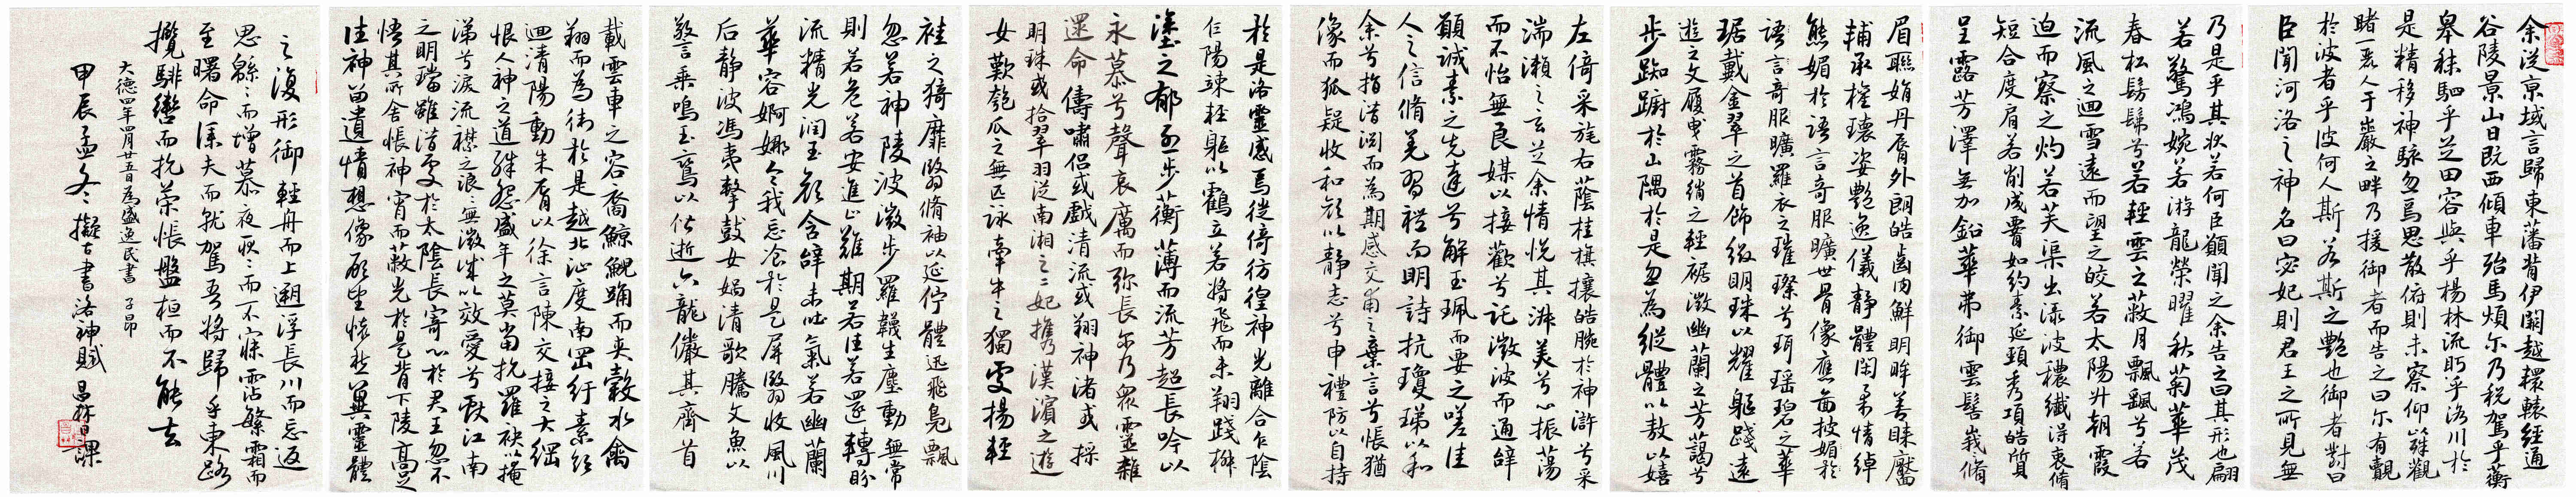 余從京域言歸東藩背伊闕越轘轅經通
谷陵景山日既西傾車殆馬煩尔乃稅駕乎蘅
皋秣駟乎芝田容與乎楊林流眄乎洛川於
是精移神駭忽焉思散俯則未察仰以殊觀
睹一麗人于巖之畔乃援御者而告之曰尔有覿
於波者乎彼何人斯若斯之艷也御者對曰
臣聞河洛之神名曰宓妃則君王之所見無
乃是乎其狀若何臣願聞之余告之曰其形也翩
若驚鴻婉若游龍榮曜秋菊華茂
春松髣髴兮若輕雲之蔽月飄颻兮若
流風之迴雪遠而望之皎若太陽升朝霞
迫而察之灼若芙渠出渌波穠纖得衷脩
短合度肩若削成腰如約素延頸秀項皓質
呈露芳澤無加鉛華弗御雲髻峩峩脩
眉聯娟丹脣外朗皓齒內鮮明眸善睞靨
輔承權瓌姿艷逸儀靜體閑柔情綽
態媚於語言奇服曠世骨像應圖披媚於
語言奇服曠羅衣之璀璨兮珥瑶碧之華
琚戴金翠之首飾綴明珠以耀軀踐遠
遊之文履曳霧綃之輕裾微幽蘭之芳藹兮
步踟躕於山隅於是忽焉縱體以敖以嬉
左倚采旄右蔭桂旗攘皓腕於神滸兮采
湍瀨之玄芝余情悅其淑美兮心振蕩
而不怡無良媒以接歡兮託微波而通辭
願誠素之先達兮解玉珮而要之嗟佳
人之信脩羌習禮而明詩抗瓊珶以和
余兮指潛淵而為期感交甫之棄言兮悵猶
像而狐疑收和顏以靜志兮申禮防以自持
於是洛靈感焉徙倚彷徨神光離合乍陰
乍陽竦輕軀以鶴立若將飛而未翔踐椒
塗之郁烈步蘅薄而流芳超長吟以
永慕兮聲哀厲而弥長尔乃眾靈雜
遝命儔嘯侶或戲清流或翔神渚或採
明珠或拾翠羽從南湘之二妃攜漢濱之遊
女歎匏瓜之無匹詠牽牛之獨處揚輕
袿之猗靡翳脩袖以延佇體迅飛鳧飄
忽若神陵波微步羅韈生塵動無常
則若危若安進止難期若往若還轉盼
流精光潤玉顏含辭未吐氣若幽蘭
華容婀娜令我忘飡於是屏翳收風川
后靜波馮夷擊鼓女媧清歌騰文魚以
警言乘鳴玉鸞以偕逝六龍儼其齊首
載雲車之容裔鯨鯢踊而夾轂水禽
翔而為衛於是越北沚度南岡紆素領
迴清陽動朱脣以徐言陳交接之大綱
恨人神之道殊怨盛年之莫當抗羅袂以掩
涕兮淚流襟之浪浪無微誠以效愛兮獻江南
之明璫雖潛處於太陰長寄心於君王忽不
悟其所舍悵神宵而蔽光於是背下陵高足
往神留遺情想像顧望懷愁冀靈體
之復形御輕舟而上遡浮長川而忘返
思緜緜而增慕夜耿耿而不寐霑繁霜而
至曙命僕夫而就駕吾將歸乎東路
攬騑轡而抗策悵盤桓而不能去
大德四年四月廿五日為盛逸民書 子昂
甲辰孟冬擬古書洛神賦